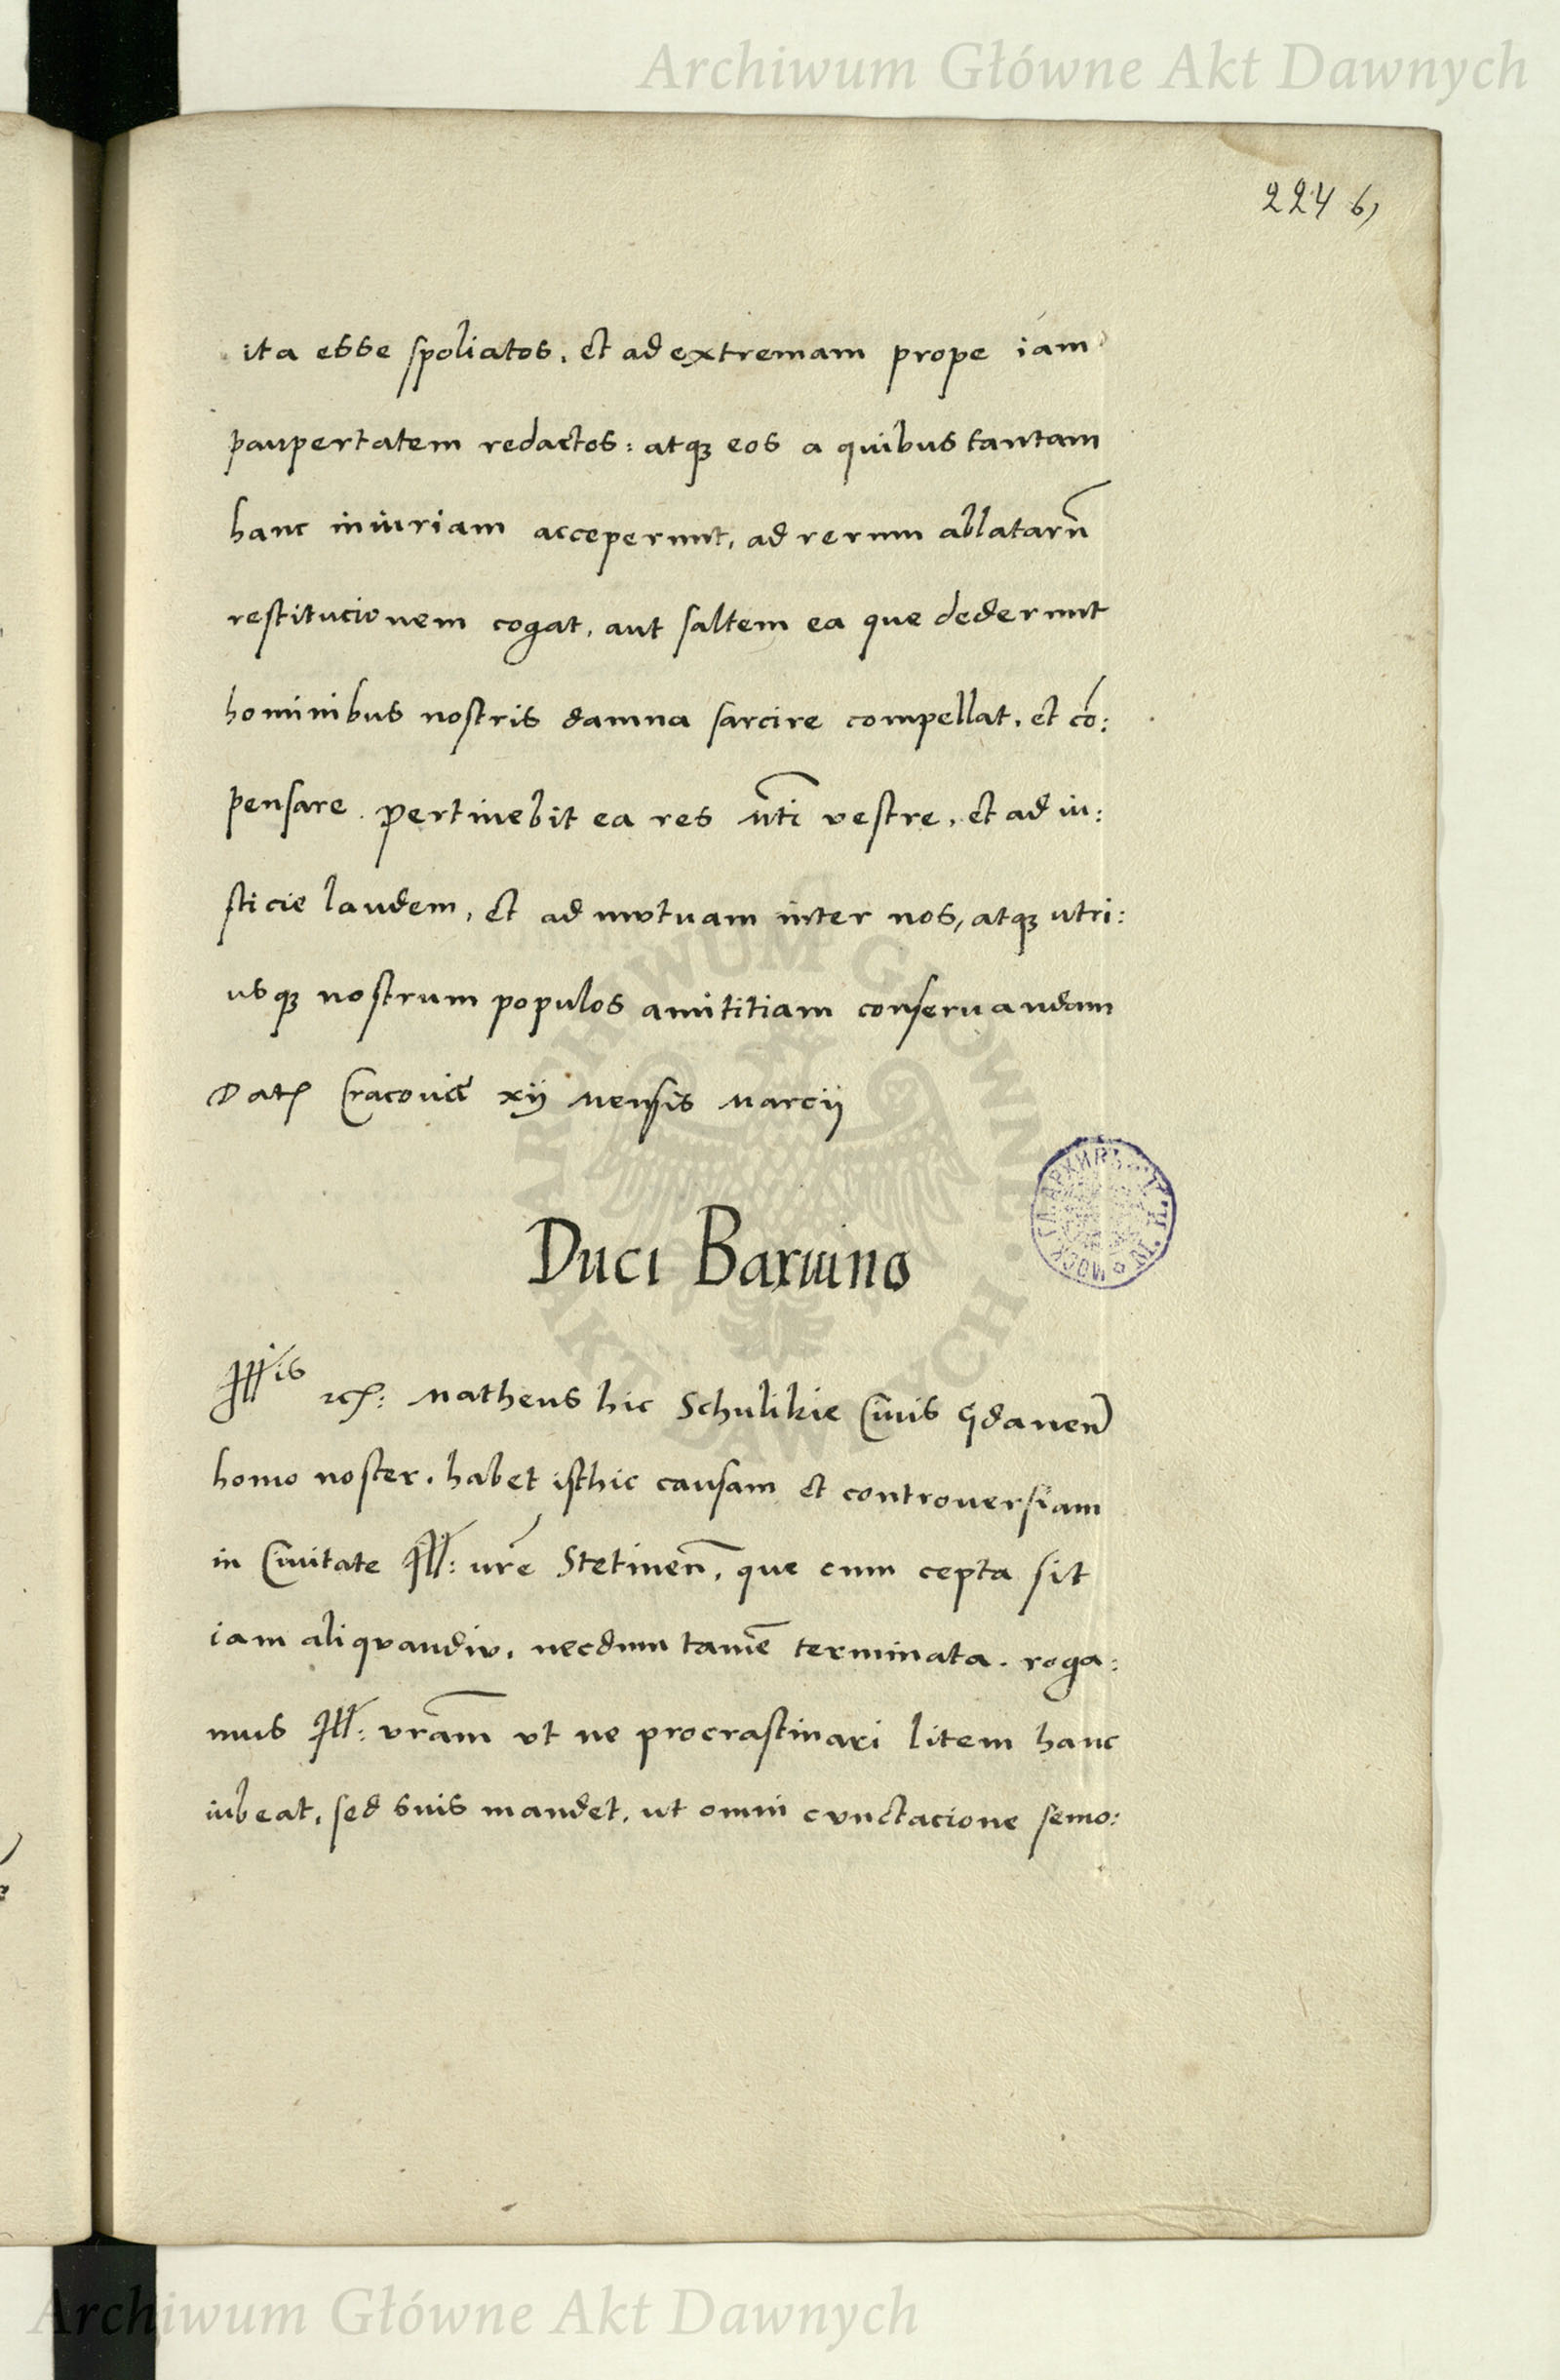 Archiwum Główne Akt Dawnych
224 b)
ita esse spoliatos, et ad extremam prope iam
paupertatem redactos: atqꝫ eos a quibus tantam
hanc iniuriam acceperunt, ad rerum ablatarū
restitucionem cogat, aut saltem ea que dederunt
hominibus nostris damna sarcire compellat, et cō:
pensare. Pertinebit ea res Mti vestre, et ad iu:
sticie laudem, et ad mutuam inter nos, atqꝫ utri:
usqꝫ nostrum populos amititiam conseruandam
Dat Cracovie xij Mensis Marcij
Duci Barnino
Illis etc: Matheus hic Schulikie Civis Gdaneñ
homo noster, habet isthic causam et controversiam
in Civitate Ill: vrē Stetineñ, que cum cepta sit
iam aliquandiu, necdum tamē terminata. roga:
mus Ill: vram̄ ut ne procrastinari litem hanc
iubeat, sed suis mandet, ut omni cunctacione semo:
ARCHIWUM GŁÓWNE AKT DAWNYCH
Archiwum Główne Akt Dawnych